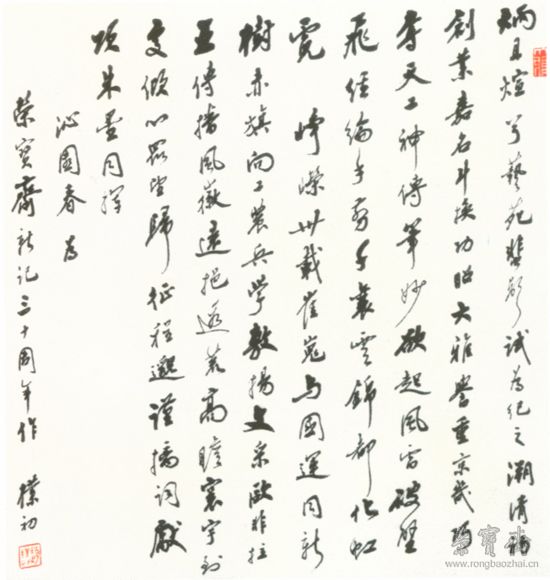 炳耳煌兮藝苑聲影試為紀之溯清秘
創業嘉名斗換功昭大雅譽重京畿巧
奪天工神傳筆妙欲起風雷破壁
飛經綸手剪千襲雲錦都化虹
霓 崢嶸卅載崔嵬与國運同新
樹赤旗向工農兵學敷揚文采歐非拉
亞傳播風徽遠挹遐荒高瞻寰宇到
處傾心眾望歸征程邈謹擒詞獻
頌朱墨同揮
沁園春 為
榮寶齋新記三十周年作 樸初
榮寶齋
www.rongbaozhai.cn